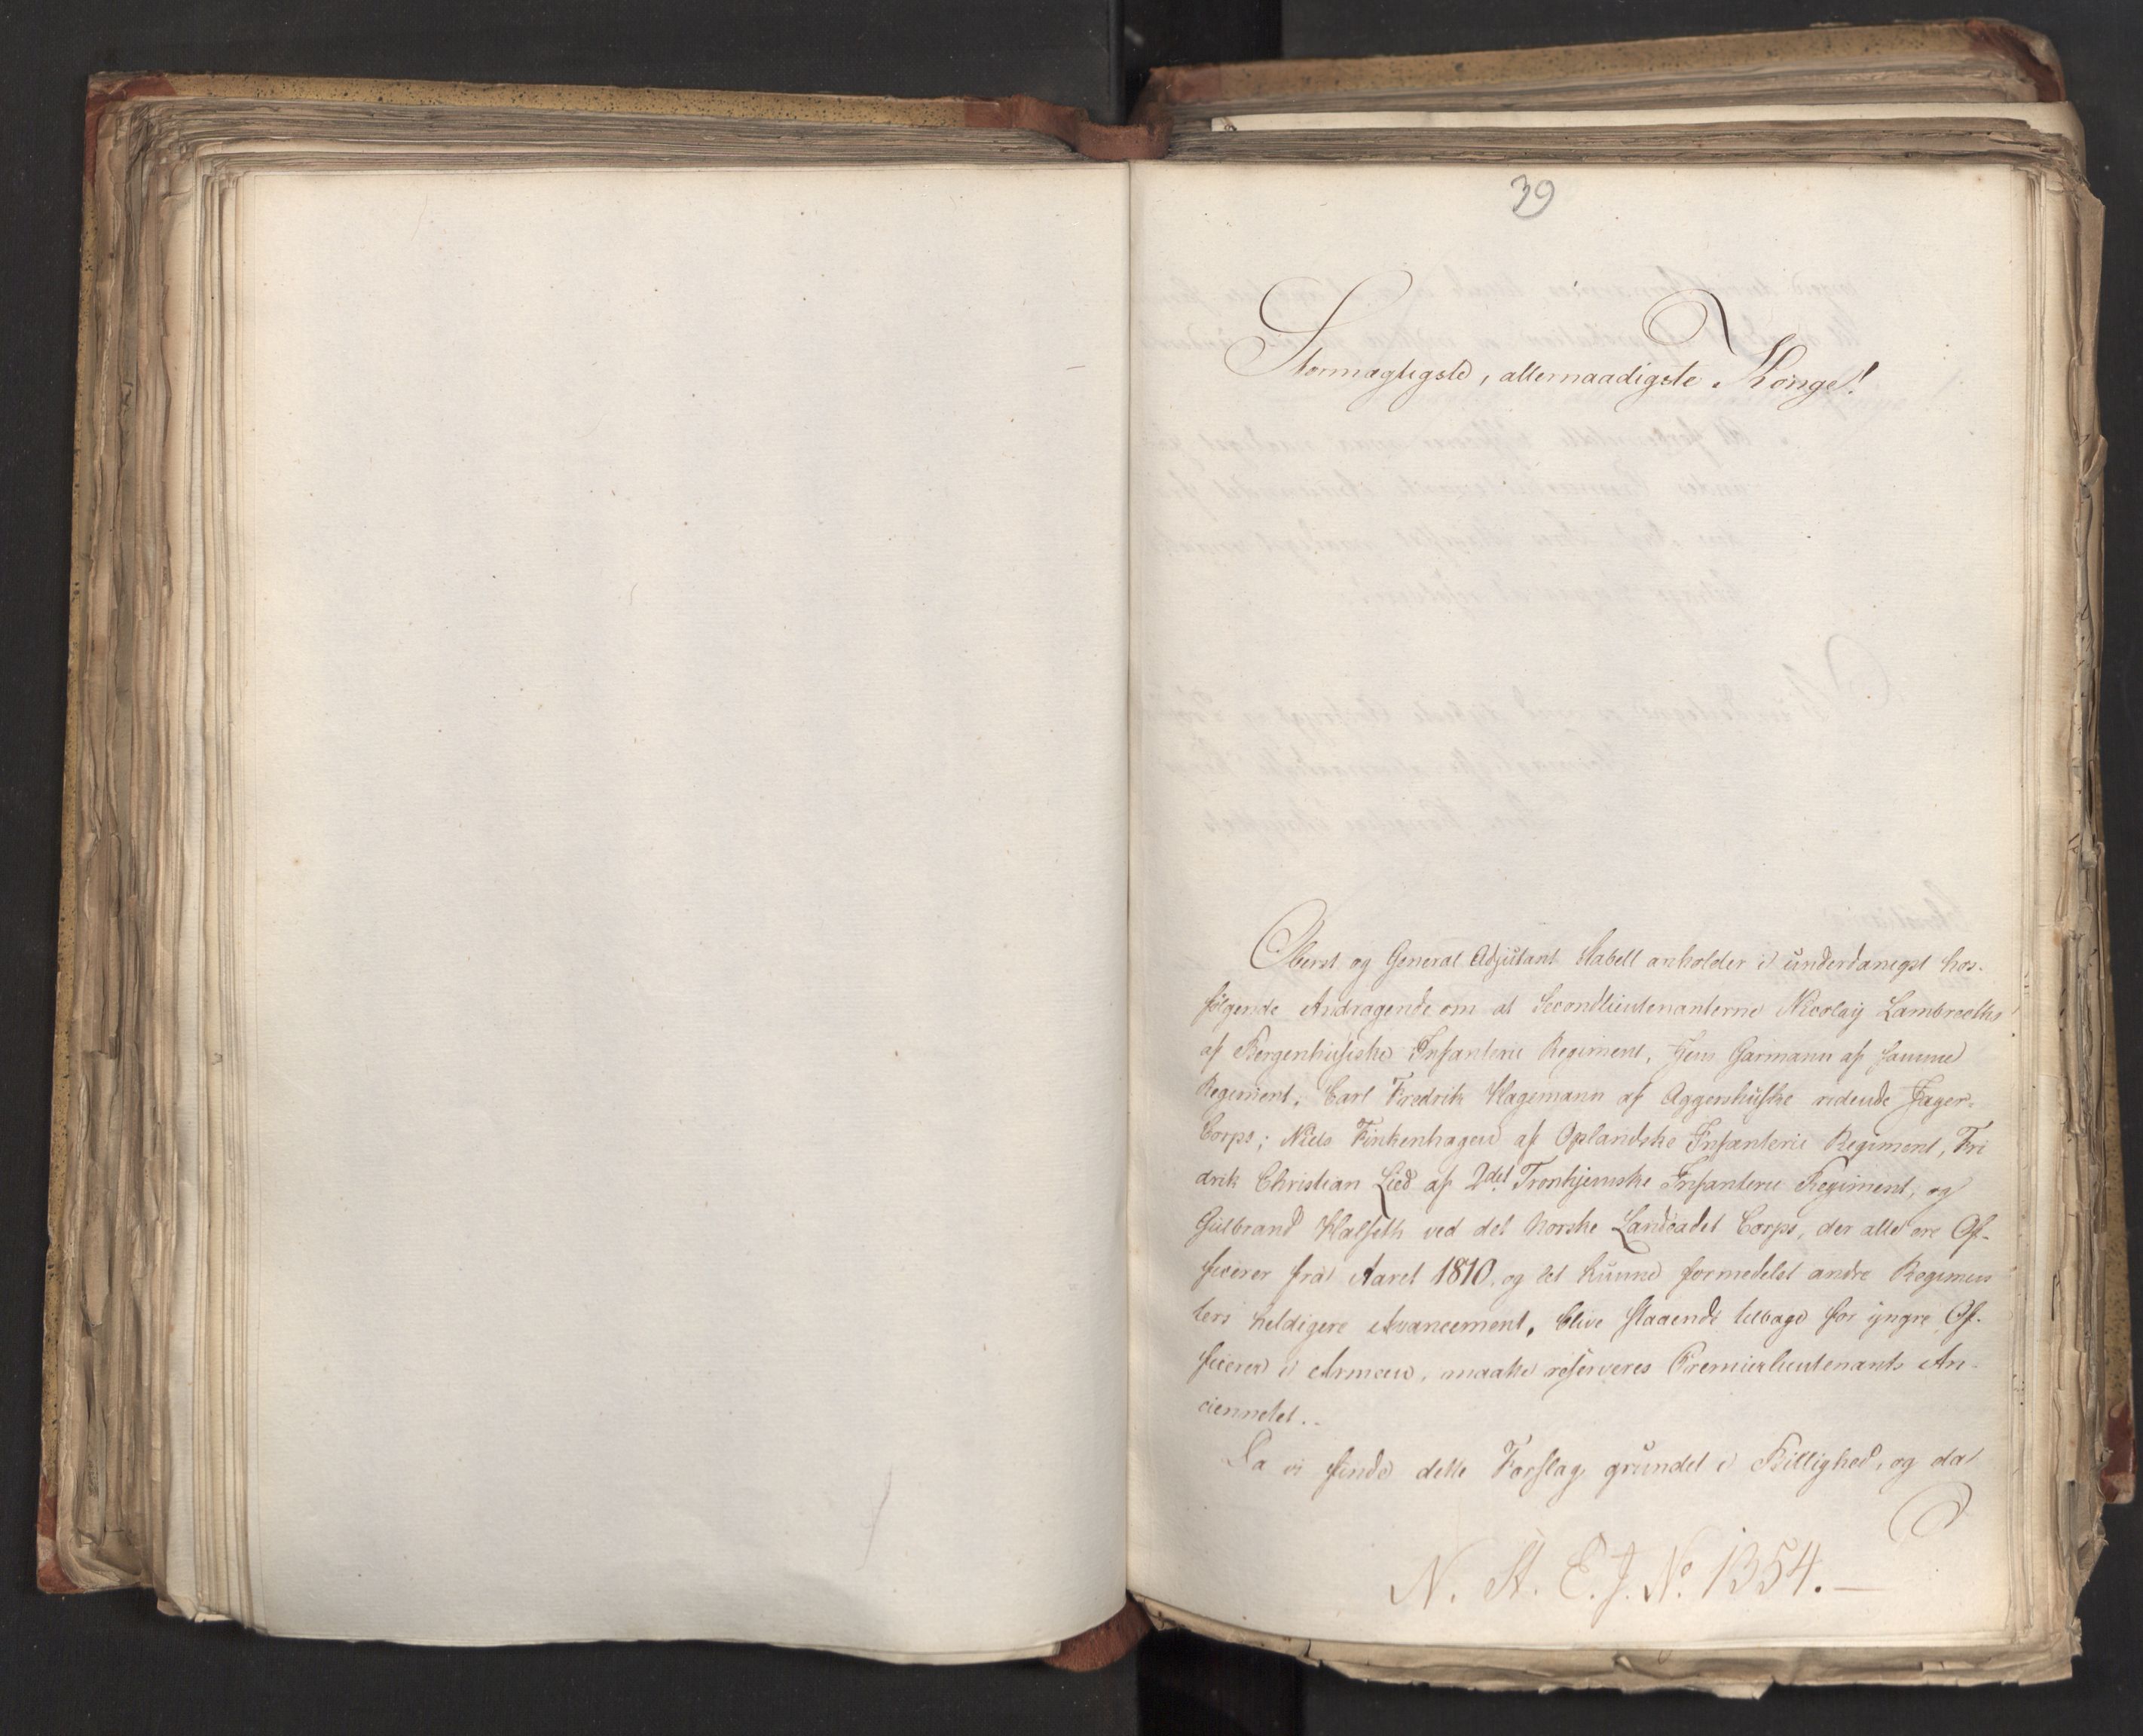 39
Stormægtigste, allernaadigste Konge!
Oberst og General Adjutant Stabell anholder i underdanigst hos-
følgende Andragende om at Secondlieutenanterne Nicolay Lambrechts
af Bergenhusiske Infanterie Regiment, Jens Garmann af samme
Regiment, Carl Fredrik Hagemann af Aggershusske ridende Jæger-
Corps; Niels Finkenhagen af Oplandske Infanterie Regiment, Fri
drik Christian Lied af 2det Tronhjemske Infanterie Regiment, og
Gulbrand Halseth ved det Norske Landcadet Corps, der alle ere Of-
ficerer fra Aaret 1810, og let kunne formedelst andre Regimen
ters heldigere Avancement, blive staaende tilbage for yngre Of-
ficerer i Armeen, maatte reserveres Premierlieutenants An-
ciennetet.-
Da vi finde dette Forslag grundet i Billighed, og da
N. St. E. J. No. 1354.-